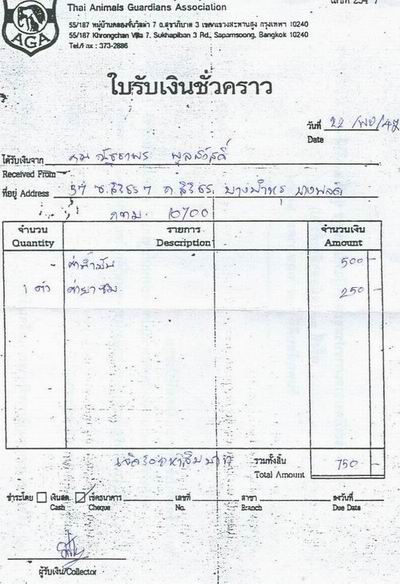 Thai Animals Guardians Association
55/187 หมู่บ้านคลองจั่นวิลล่า 7 ถ.สุขาภิบาล 3 เขตแขวงสะพานสูง กรุงเทพฯ 10240
55/187 Khrongchan Villa 7. Sukhapiban 3 Rd., Sapamsoong, Bangkok 10240
Tel./Fax : 373-2886
AGA
ใบรับเงินชั่วคราว
วันที่ 22 /พย/47
Date
ได้รับเงินจาก คุณ
Received From
ที่อยู่ Address 37 บางพลัด
กทม. 10700
จำนวน รายการ จำนวนเงิน
Quantity Description Amount
- ค่าน้ำมัน 500 -
1 ตัว ค่ายาซึม 250 -
เจ็ดร้อยห้าสิบบาท รวมทั้งสิ้น 750 -
Total Amount
ชำระโดย เงินสด เช็คธนาคาร เลขที่ สาขา ลงวันที่
Cash Cheque No. Branch Due Date
ผู้รับเงิน/Collector